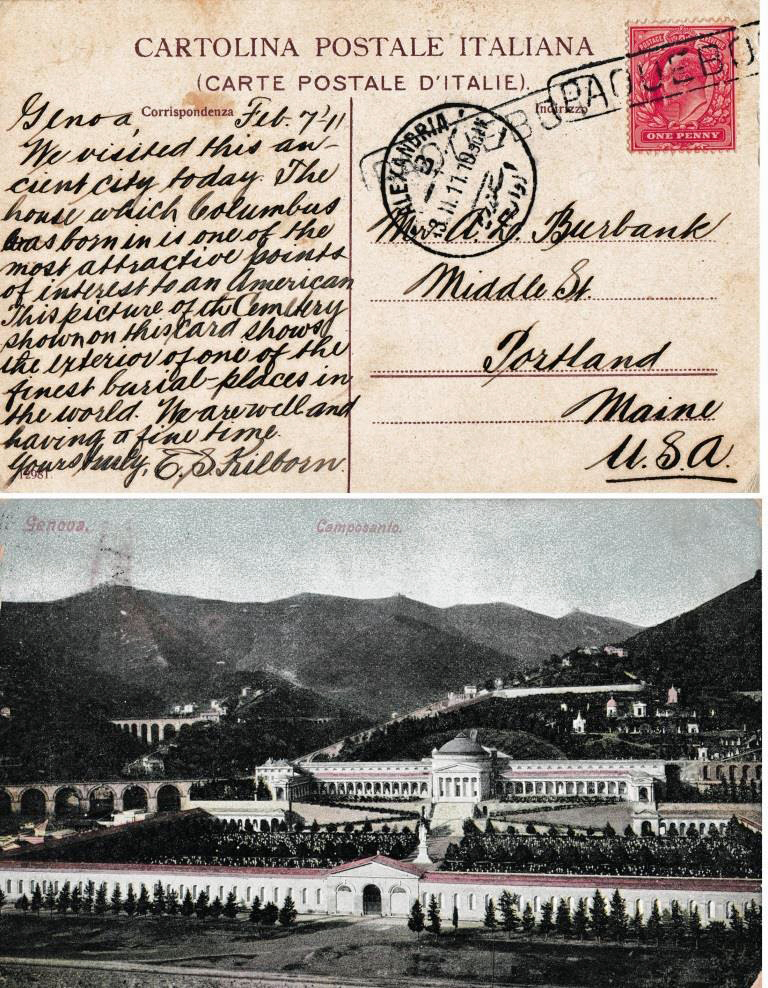 CARTOLINA POSTALE ITALIANA
(CARTE POSTALE D'ITALIE).
Corrispondenza
Indirizzo
PAQUEBO
ONE PENNY
ALEXANDRIA
13.II.11.10
Genoa, Feb. 7' 11
We visited this an-
cient city today. The
house which Columbus
was born in is one of the
most attractive points
of interest to an American
This picture of th Cemetery
shown on this card shows
the exterior of one of the
finest burial-places in
the world. We are well and
having a fine time.
Yours truly, E. S. Kilborn.
12981
A. L. Burbank
Middle St.
Portland
Maine
U.S.A.
Genova.
Camposanto.